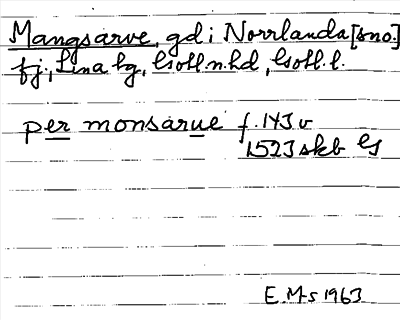 Mangsarve, gd i Norrlanda [sno.]
fj., Lina tg, Gotl. n. hd, Gotl. l.
per monsarue f. 143 v
1523 skb Gs
E. M-s 1963